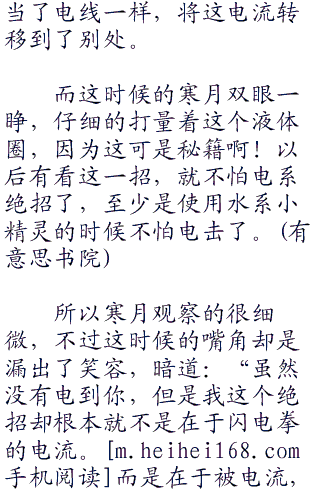 当了电线一样，将这电流转
移到了别处。
而这时候的寒月双眼一
睁，仔细的打量着这个液体
圈，因为这可是秘籍啊！以
后有看这一招，就不怕电系
绝招了，至少是使用水系小
精灵的时候不怕电击了。(有
意思书院)
所以寒月观察的很细
微，不过这时候的嘴角却是
漏出了笑容，暗道：“虽然
没有电到你，但是我这个绝
招却根本就不是在于闪电拳
的电流。[m.heihei168.com
手机阅读]而是在于被电流，